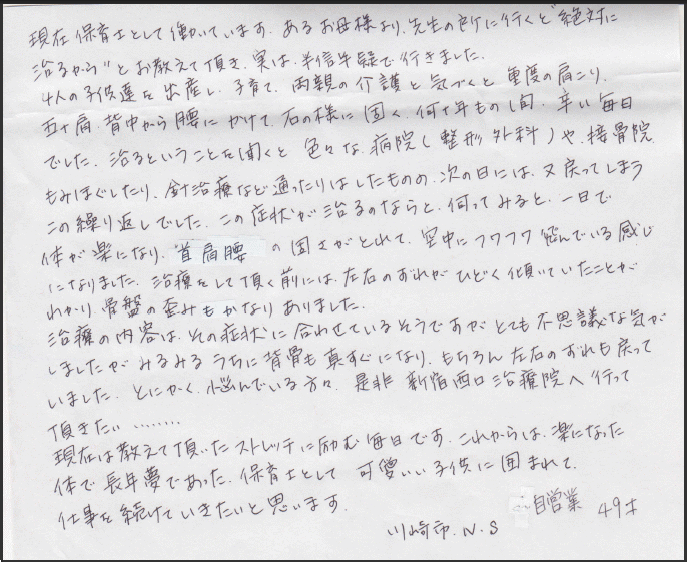 現在保育士として働いています。あるお母様より、先生の所に行くと"絶対に
治るから"とお教えて頂き、実は、半信半疑で行きました。
4人の子供達を出産し、子育て、両親の介護と気づくと重度の肩こり、
五十肩、背中から腰にかけて、石の様に固く、何十年もの間、辛い毎日
でした。治るということを聞くと色々な病院(整形外科)や、接骨院
もみほぐしたり、針治療など通ったりはしたものの、次の日には、又戻ってしまう
この繰り返しでした。この症状が治るのならと、伺ってみると、一日で
体が楽になり、首肩腰の固さがとれて、空中にフワフワ飛んでいる感じ
になりました。治療をして頂く前には、左右のずれがひどく傾いていたことが
わかり、骨盤の歪みもかなりありました。
治療の内容は、その症状に合わせているそうですがとても不思議な気が
しましたがみるみるうちに背骨も真すぐになり、もちろん左右のずれも戻って
いました。とにかく、悩んでいる方々、是非新宿西口治療院へ行って
頂きたい………
現在は教えて頂いたストレッチに励む毎日です。これからは、楽になった
体で長年夢であった、保育士として可愛いい子供に囲まれて、
仕事を続けていきたいと思います。
自営業 49才
川崎市.N.S